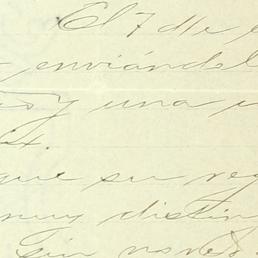 El 7 de
enviándol
y una
que su reg
muy distin
sin noved